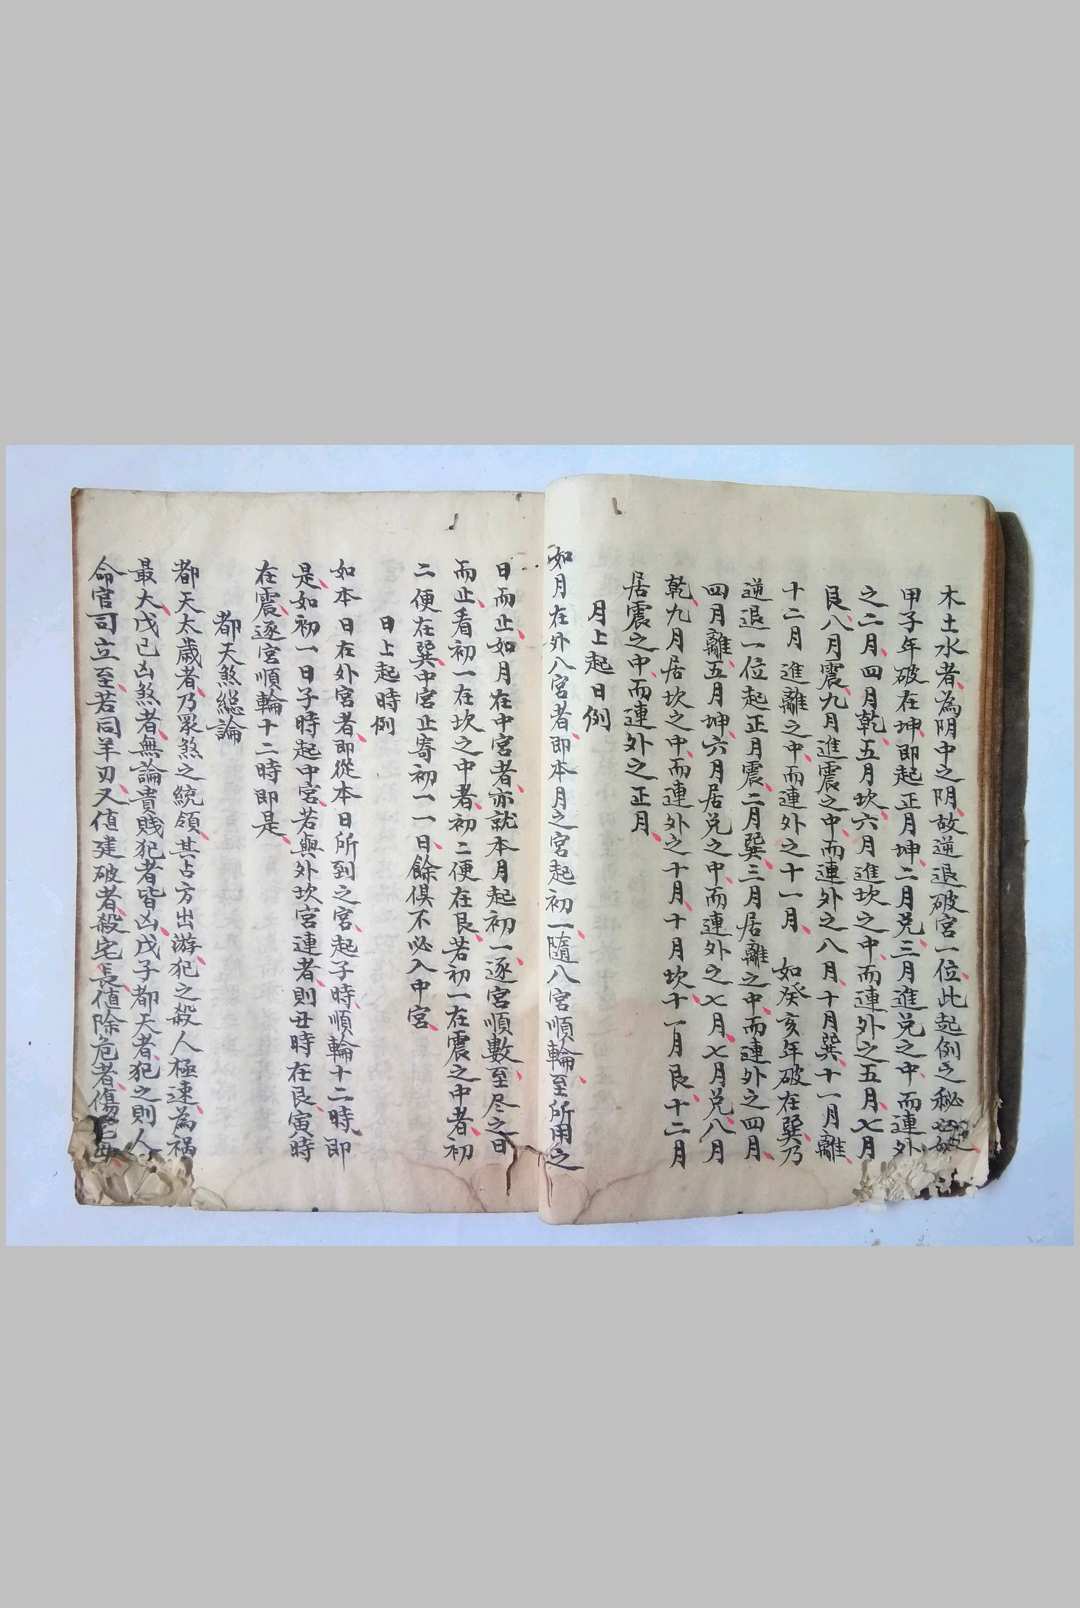 木土水者為阴中之阴故逆退破宮一位此起例之秘
甲子年破在坤即起正月坤二月兑三月進兑之中而連外
之二月四月乾五月坎六月進坎之中而連外之五月七月
艮八月震九月進震之中而連外之八月十月巽十一月離
十二月進離之中而連外之十一月 如癸亥年破在巽乃
逆退一位起正月震二月巽三月居離之中而連外之四月
四月離五月坤六月居兑之中而連外之七月七月兑八月
乾九月居坎之中而連外之十月十月坎十一月艮十二月
居震之中而連外之正月
月上起日例
如月在外八宮者即本月之宮起初一隨八宮順輪至所用之
日而止如月在中宮者亦就本月起初一逐宮順數至尽之日
而止看初一在坎之中者初二便在艮若初一在震之中者初
二便在巽中宮止寄初一一日餘俱不必入中宮
日上起時例
如本日在外宮者即從本日所到之宮起子時順輪十二時即
是如初一日子時起中宮若與外坎宮連者則丑時在艮寅時
在震逐宮順輪十二時即是
都天煞総論
都天太歲者乃眾煞之統領其占方出游犯之殺人極速為禍
最大戊己凶煞者無論貴賤犯者皆凶戊子都天者犯之則人
命官司立至若同羊刃又值建破者殺宅長值除危者傷